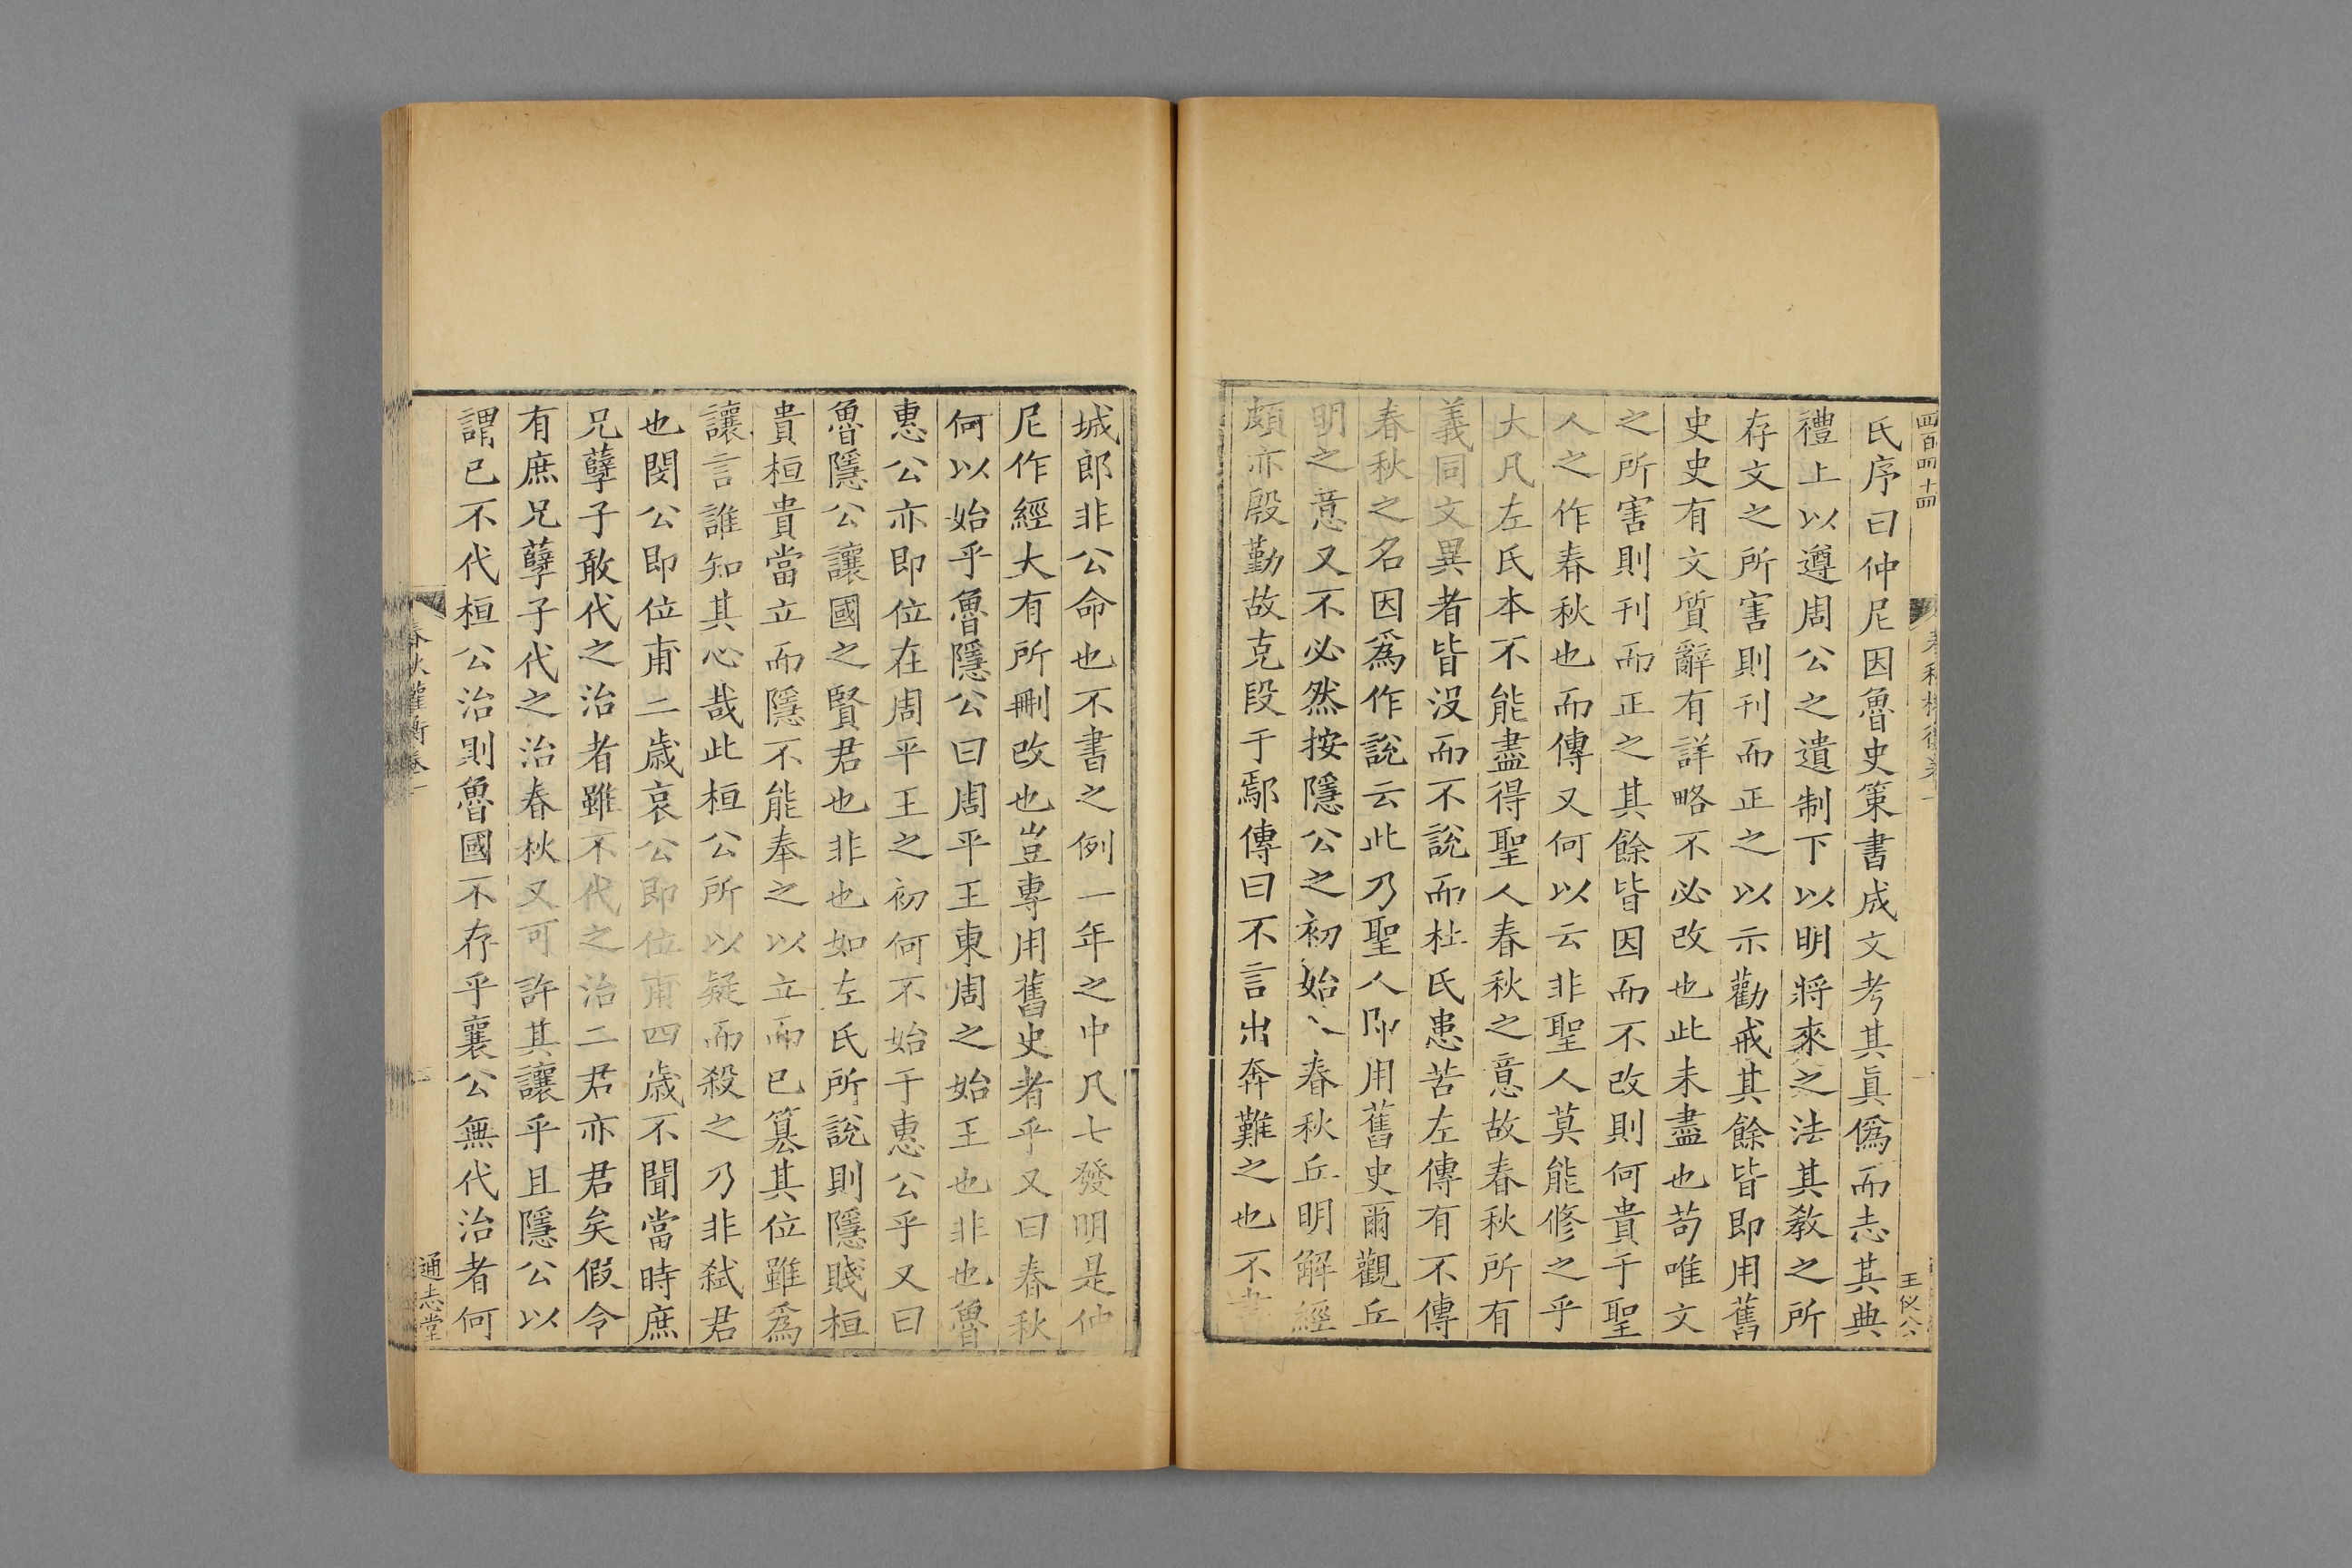 四百四十四
王仪公
氏序曰仲尼因魯史策書成文考其眞僞而志其典
禮上以遵周公之遺制下以明將來之法其敎之所
存文之所害則刊而正之以示勸戒其餘皆即用舊
史史有文質辭有詳略不必改也此未盡也苟唯文
之所害則刊而正之其餘皆因而不改則何貴于聖
人之作春秋也而傳又何以云非聖人莫能修之乎
大凡左氏本不能盡得聖人春秋之意故春秋所有
義同文異者皆没而不說而杜氏患苦左傳有不傳
春秋之名因爲作說云此乃聖人即用舊史爾觀丘
明之意又不必然按隱公之初始入春秋丘明解經
頗亦殷勤故克段于鄢傳曰不言出奔難之也不書
城郎非公命也不書之例一年之中凡七發明是仲
尼作經大有所刪改也豈專用舊史者乎又曰春秋
何以始乎魯隱公曰周平王東周之始王也非也魯
惠公亦即位在周平王之初何不始于惠公乎又曰
魯隱公讓國之賢君也非也如左氏所說則隱賤桓
貴桓貴當立而隱不能奉之以立而已簒其位雖爲
讓言誰知其心哉此桓公所以疑而殺之乃非弑君
也閔公即位甫二歳哀公即位甫四歳不聞當時庶
兄孽子敢代之治者雖不代之治二君亦君矣假令
有庶兄孽子代之治春秋又可許其讓乎且隱公以
謂已不代桓公治則魯國不存乎襄公無代治者何
春秋權衡卷一
二
通志堂